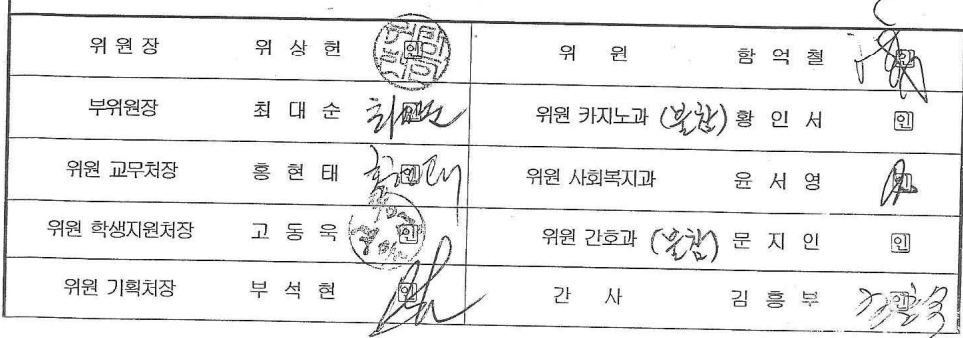 위 원 장 위 상 헌 인 위 원 함 억 철 인
부위원장 최 대 순 인 위원 카지노과 (불참) 황 인 서 인
위원 교무처장 홍 현 태 인 위원 사회복지과 윤 서 영 인
위원 학생지원처장 고 동 욱 인 위원 간호과 (불참) 문 지 인 인
위원 기획처장 부 석 현 인 간 사 김 흥 부 인